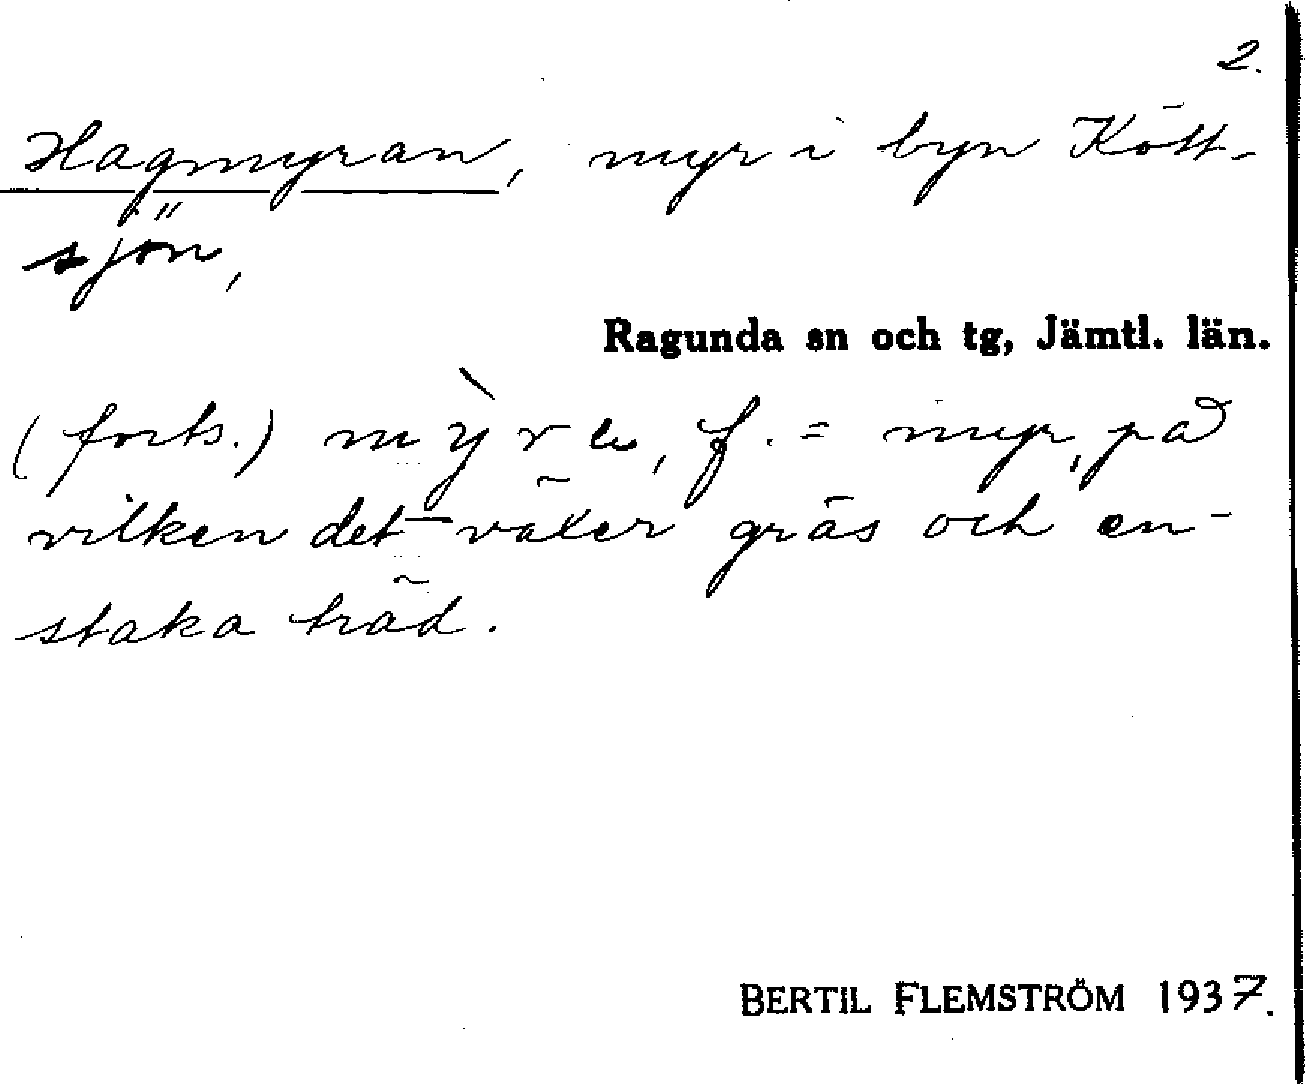 2.
Hagmyran, myr i byn Kött-
sjön,
Ragunda sn och tg, Jämtl. län.
(forts.) f. = myr, på
vilken det växer gräs och en-
staka träd.
BERTIL FLEMSTRÖM 1937.